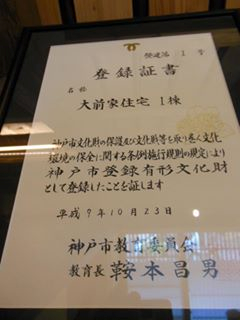 登録証書
名称
大前家住宅 1棟
神戸市文化財の保護及び文化財等を取り巻く文化
環境の保全に関する条例施行規則の規定により
神戸市登録有形文化財
として登録したことを証します
平成9年10月23日
神戸市教育委員会
教育長 鞍本昌男